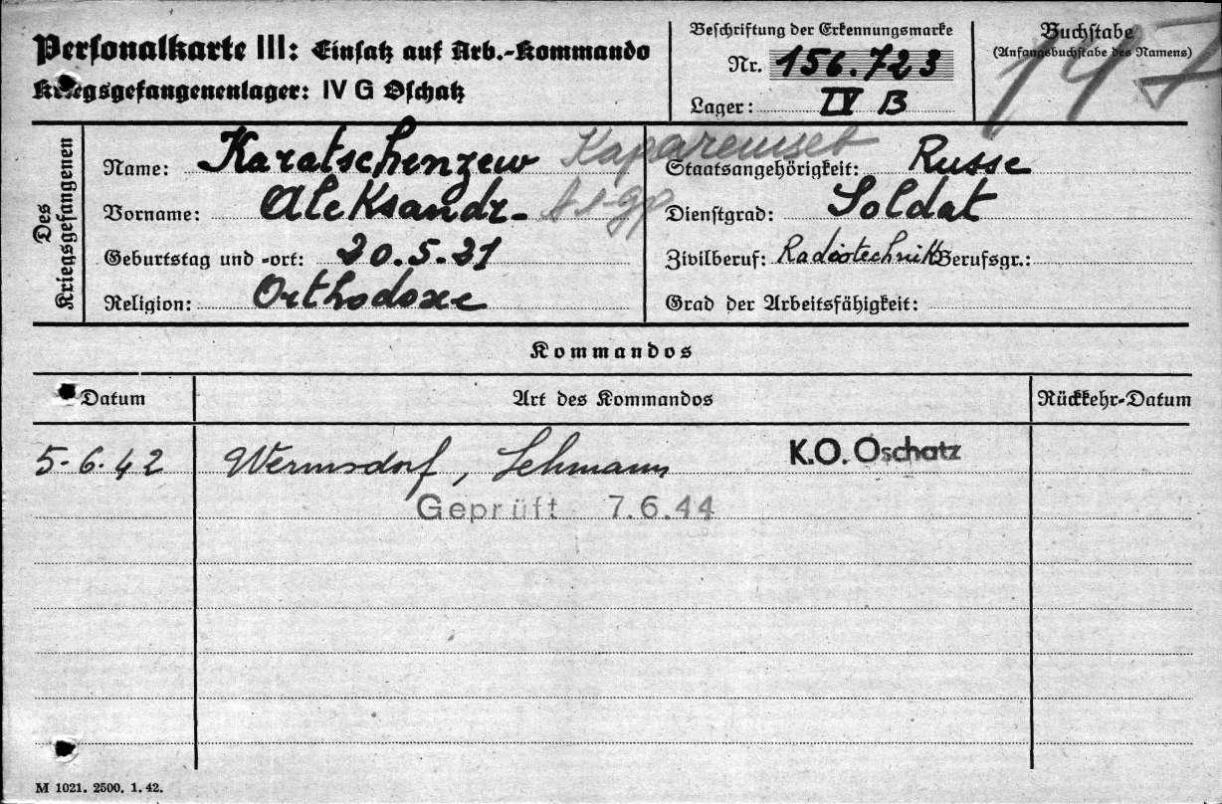 Personalkarte III: Einsatz auf Arb.-Kommando
Kriegsgefangenenlager: IV G Oschatz
Beschriftung der Erkennungsmarke
Nr. 156.723
Lager: IV B
Buchstabe
(Anfangsbuchstabe des Namens)
Des Kriegsgefangenen
Name: Karatschenzew
Vorname: Aleksandr
Geburtstag und -ort: 20.5.21
Religion: Orthodoxe
Staatsangehörigkeit: Russe
Dienstgrad: Soldat
Zivilberuf: Radiotechnik Berufsgr.:
Grad der Arbeitsfähigkeit:
Kommandos
Datum Art des Kommandos Rückkehr-Datum
5-6.42 Wermsdorf, Lehmann K.O. Oschatz
Geprüft 7.6.44
M 1021. 2500. 1. 42.